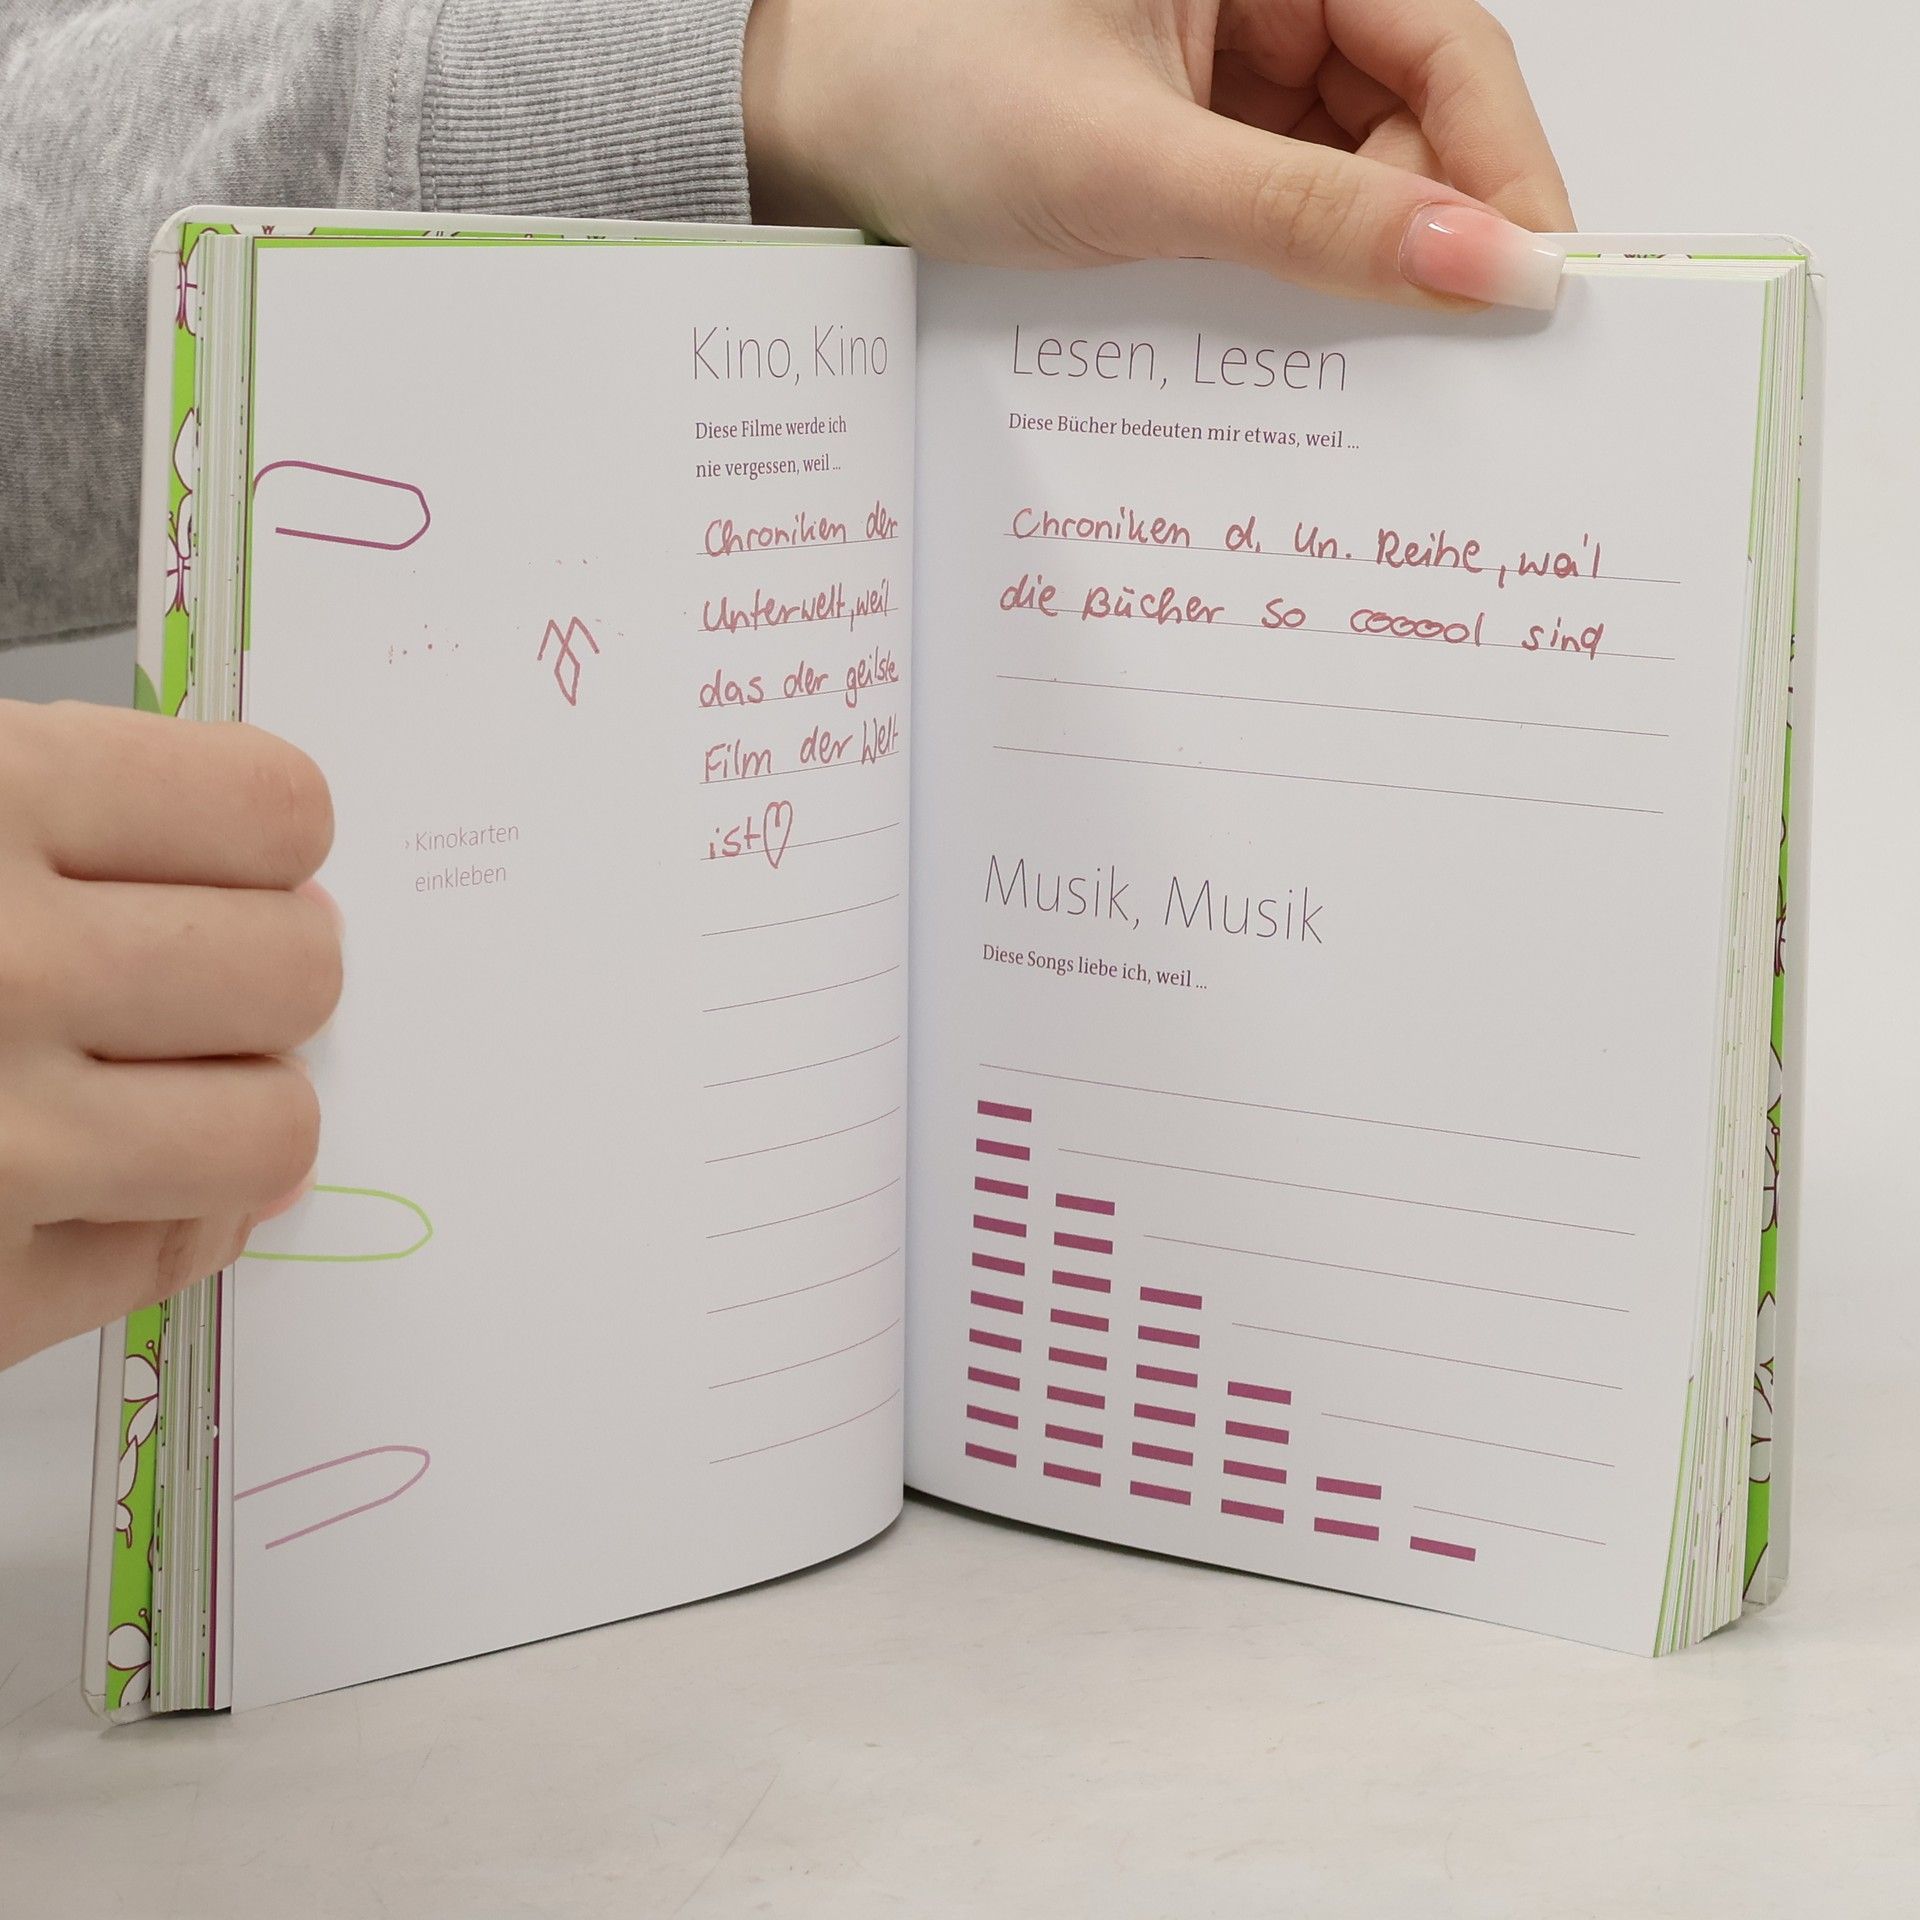 Kino, Kino
Diese Filme werde ich
nie vergessen, weil ...
Chroniken der
Unterwelt, weil
das der geilste
Film der Welt
ist♡
› Kinokarten
einkleben
Lesen, Lesen
Diese Bücher bedeuten mir etwas, weil ...
Chroniken d. Un. Reihe, weil
die Bücher so cooool sind
Musik, Musik
Diese Songs liebe ich, weil ...